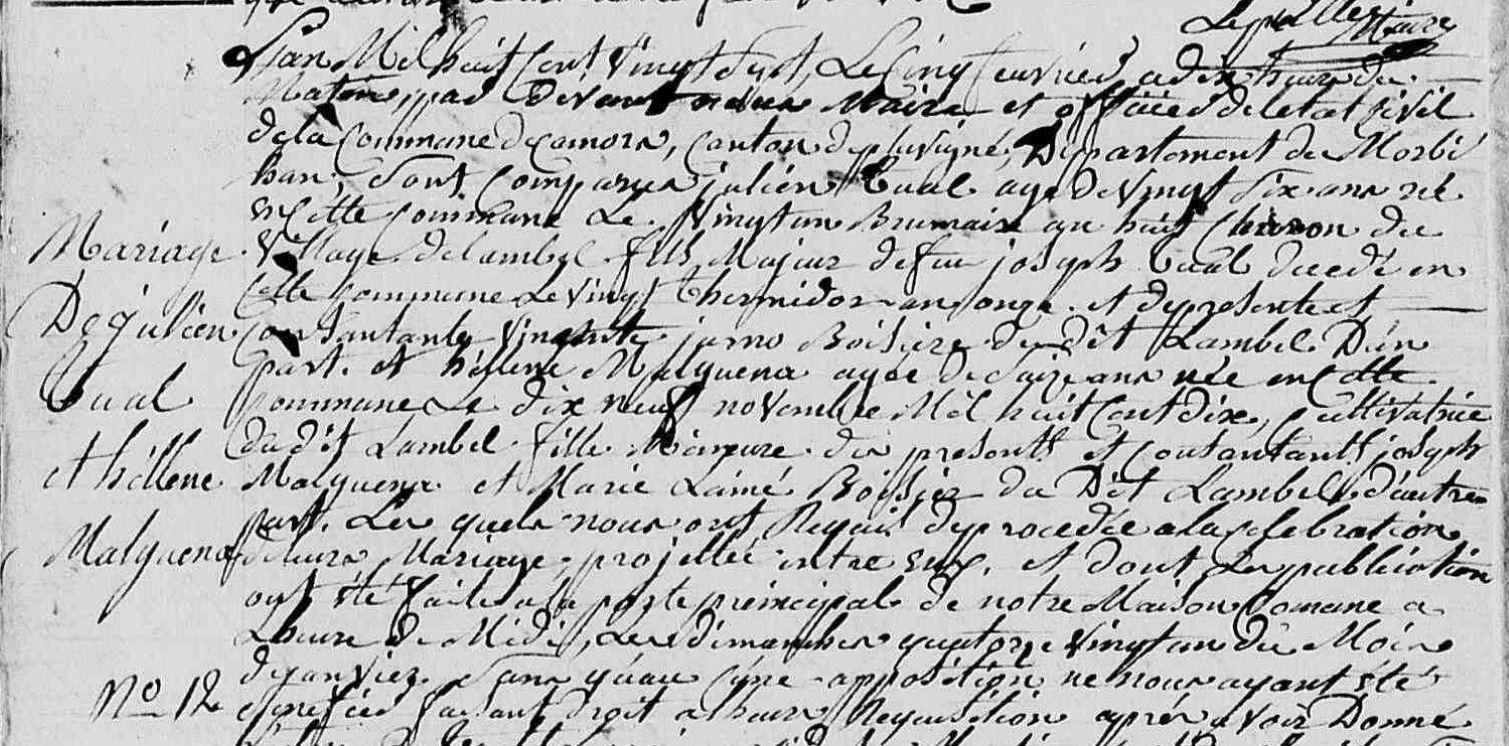 Maire
L'an Mil huit Cent Vingt Sept, Le Cinq fevrier, a dix heure du
Matin, par Devant nous Maire et officier de letat Civil
de la Commune de camors, Canton de pluvigné, Département du Morbi
han, Sont Comparus julien Tual agé de Vingt Six ans né
en Cette Commune Le Vingt un Brumaire an huit, du
Village de lambel fils Majeur de feu joseph Tual decedé en
Cette Commune Le vingt Thermidor an onze et de presente et
Consantante Vincente jarno Boisiere du dit Lambel D'un
part. et héllene Malguena agée de Saize ans née en Cette
Commune Le dix neuf novembre Mil huit Cent dix, Cultivatrice
du dit Lambel fille Mineure des presents et Consantants joseph
Malguena et Marie Lamé Boisier du Dit Lambel d'autre
part. Les quels nous ont Requis de procedée a la Celebration
de leurs Mariage projettée entre eux, et dont Les publication
ont été faites a la porte principal de notre Maison Comune a
Lheure de Midi, Les dimanches quatorze Vingt un du Mois
de janvier. Sans qu'au Cune opposition ne nous ayant été
Signifiée faisant Droit a Leurs Requisition aprés avoir Donné
Mariage
De julien
Tual
et héllene
Malguena
No 12